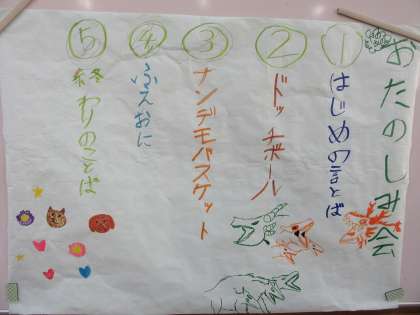 おたのしみ会
① はじめの言とば
② ドッチボール
③ ナンデモバスケット
④ ふえおに
⑤ 終わりのことば